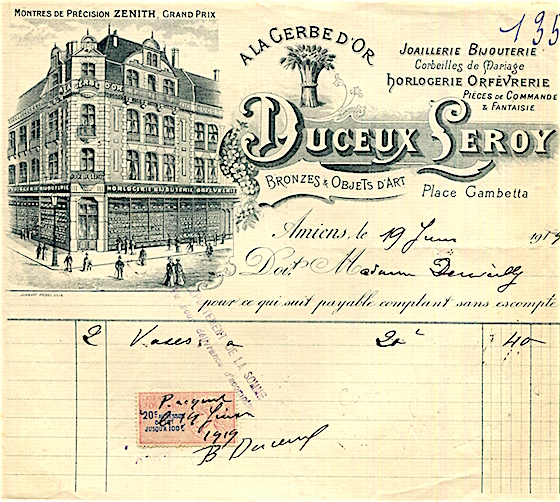 MONTRES DE PRÉCISION ZENITH, GRAND PRIX
135
A LA GERBE D'OR
JOAILLERIE BIJOUTERIE
Corbeilles de Mariage
HORLOGERIE ORFÈVRERIE
PIÈCES DE COMMANDE
& FANTAISIE
DUCEUX LEROY
BRONZES & OBJETS D'ART
Place Gambetta
A LA GERBE D'OR
DUCEUX LEROY
BIJOUTERIE HORLOGERIE BIJOUTERIE ORFÈVRERIE
Amiens, le 19 Juin 1919
Doit Madame
pour ce qui suit payable comptant sans escompte
2 Vases a 20 40
DE LA SOMME
P. acquit
le 19 Juin
1919
20c
JUSQU'A 100f
B Duceux